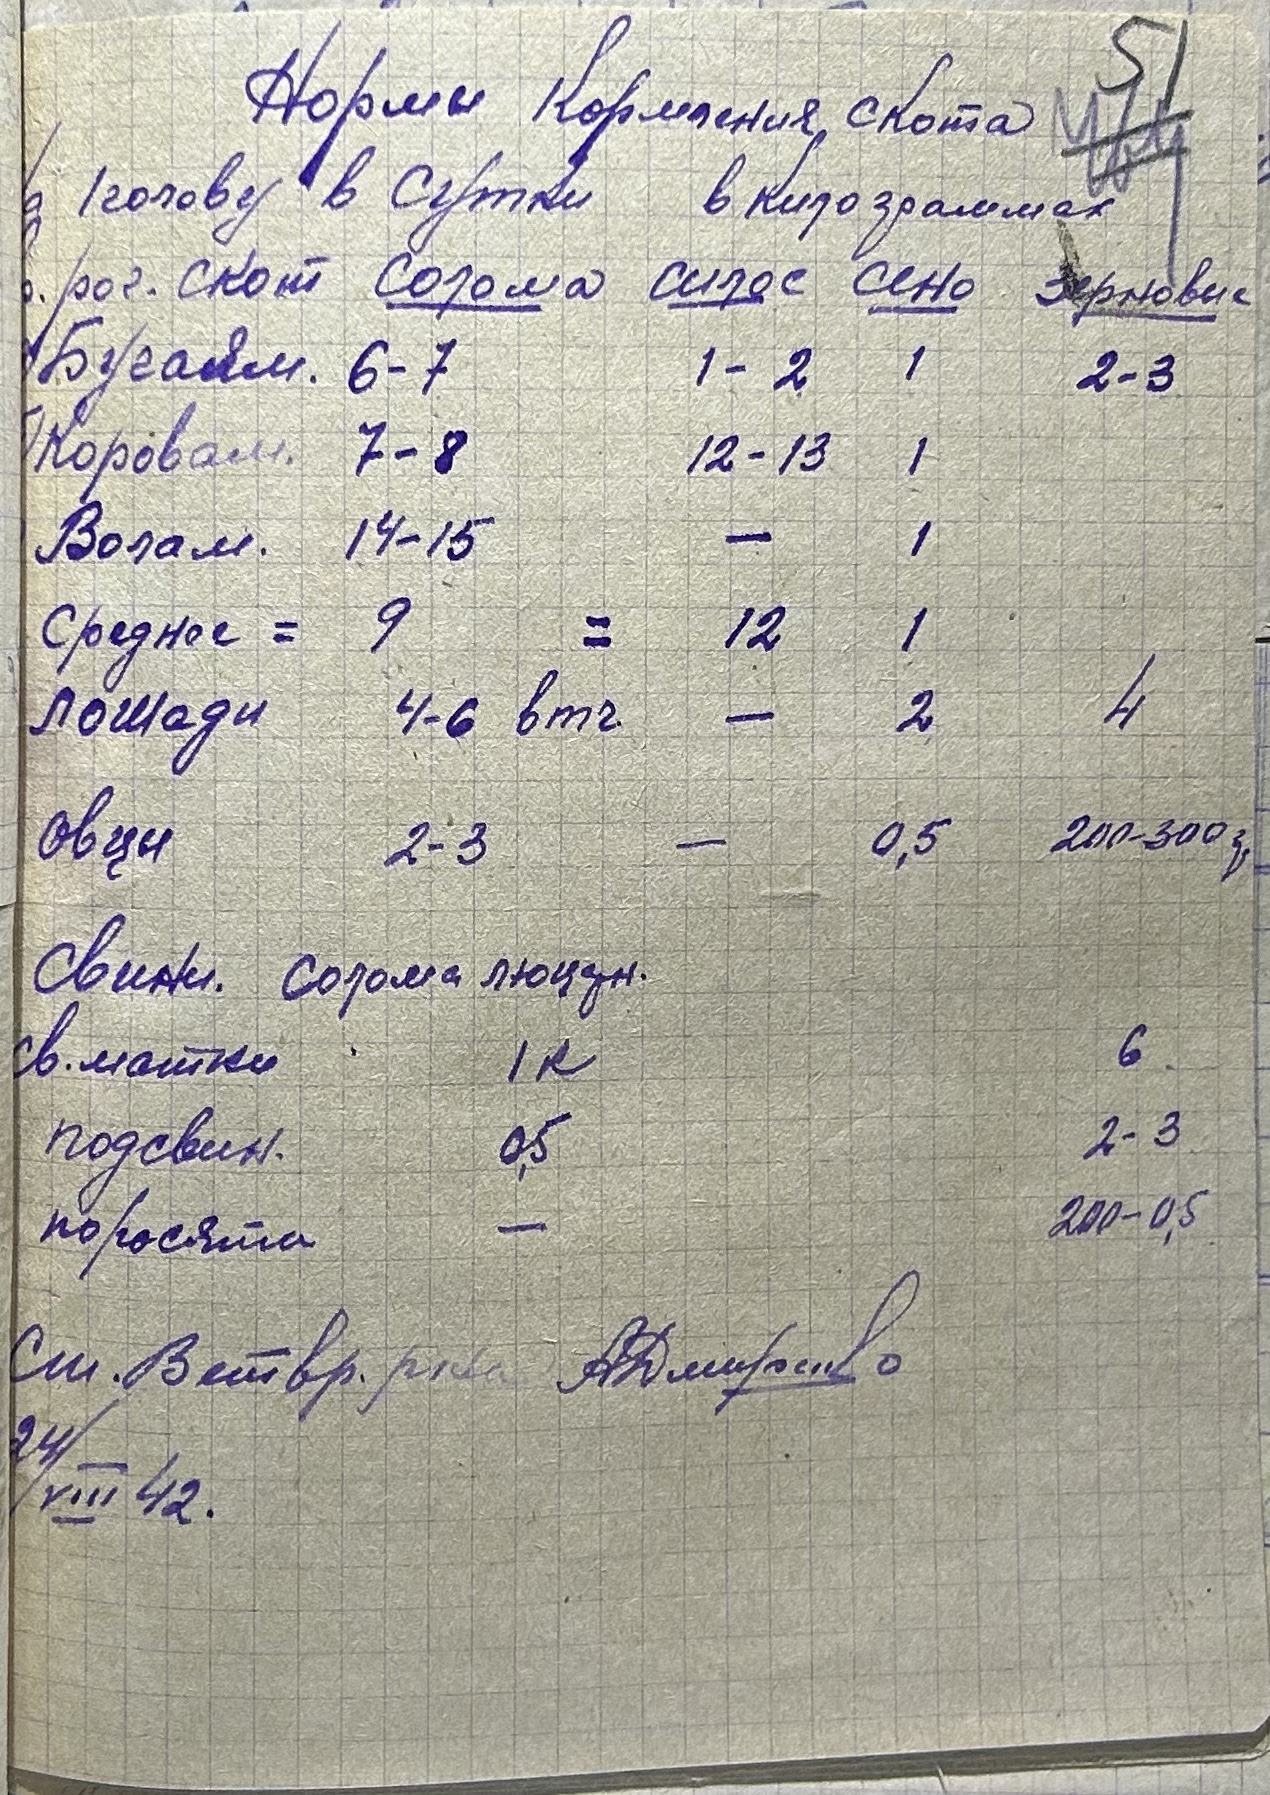 51
Нормы кормления скота
на 1 голову в сутки в килограммах
р. рог. скот солома силос сено зерновые
Бугаям. 6-7 1-2 1 2-3
Коровам. 7-8 12-13 1
Волам. 14-15 — 1
Среднее = 9 = 12 1
Лошади 4-6 втч. — 2 4
Овцы 2-3 — 0,5 200-300 г,
Свиньи. солома люцерн.
св. матки 1 к 6.
подсвин. 0,5 2-3
поросята — 200-0,5
Ст. Ветвр.
24/VIII 42.